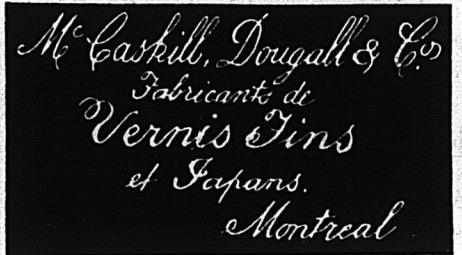 McCaskill, Dougall & Co.
Fabricants de
Vernis Fins
et Japans.
Montreal